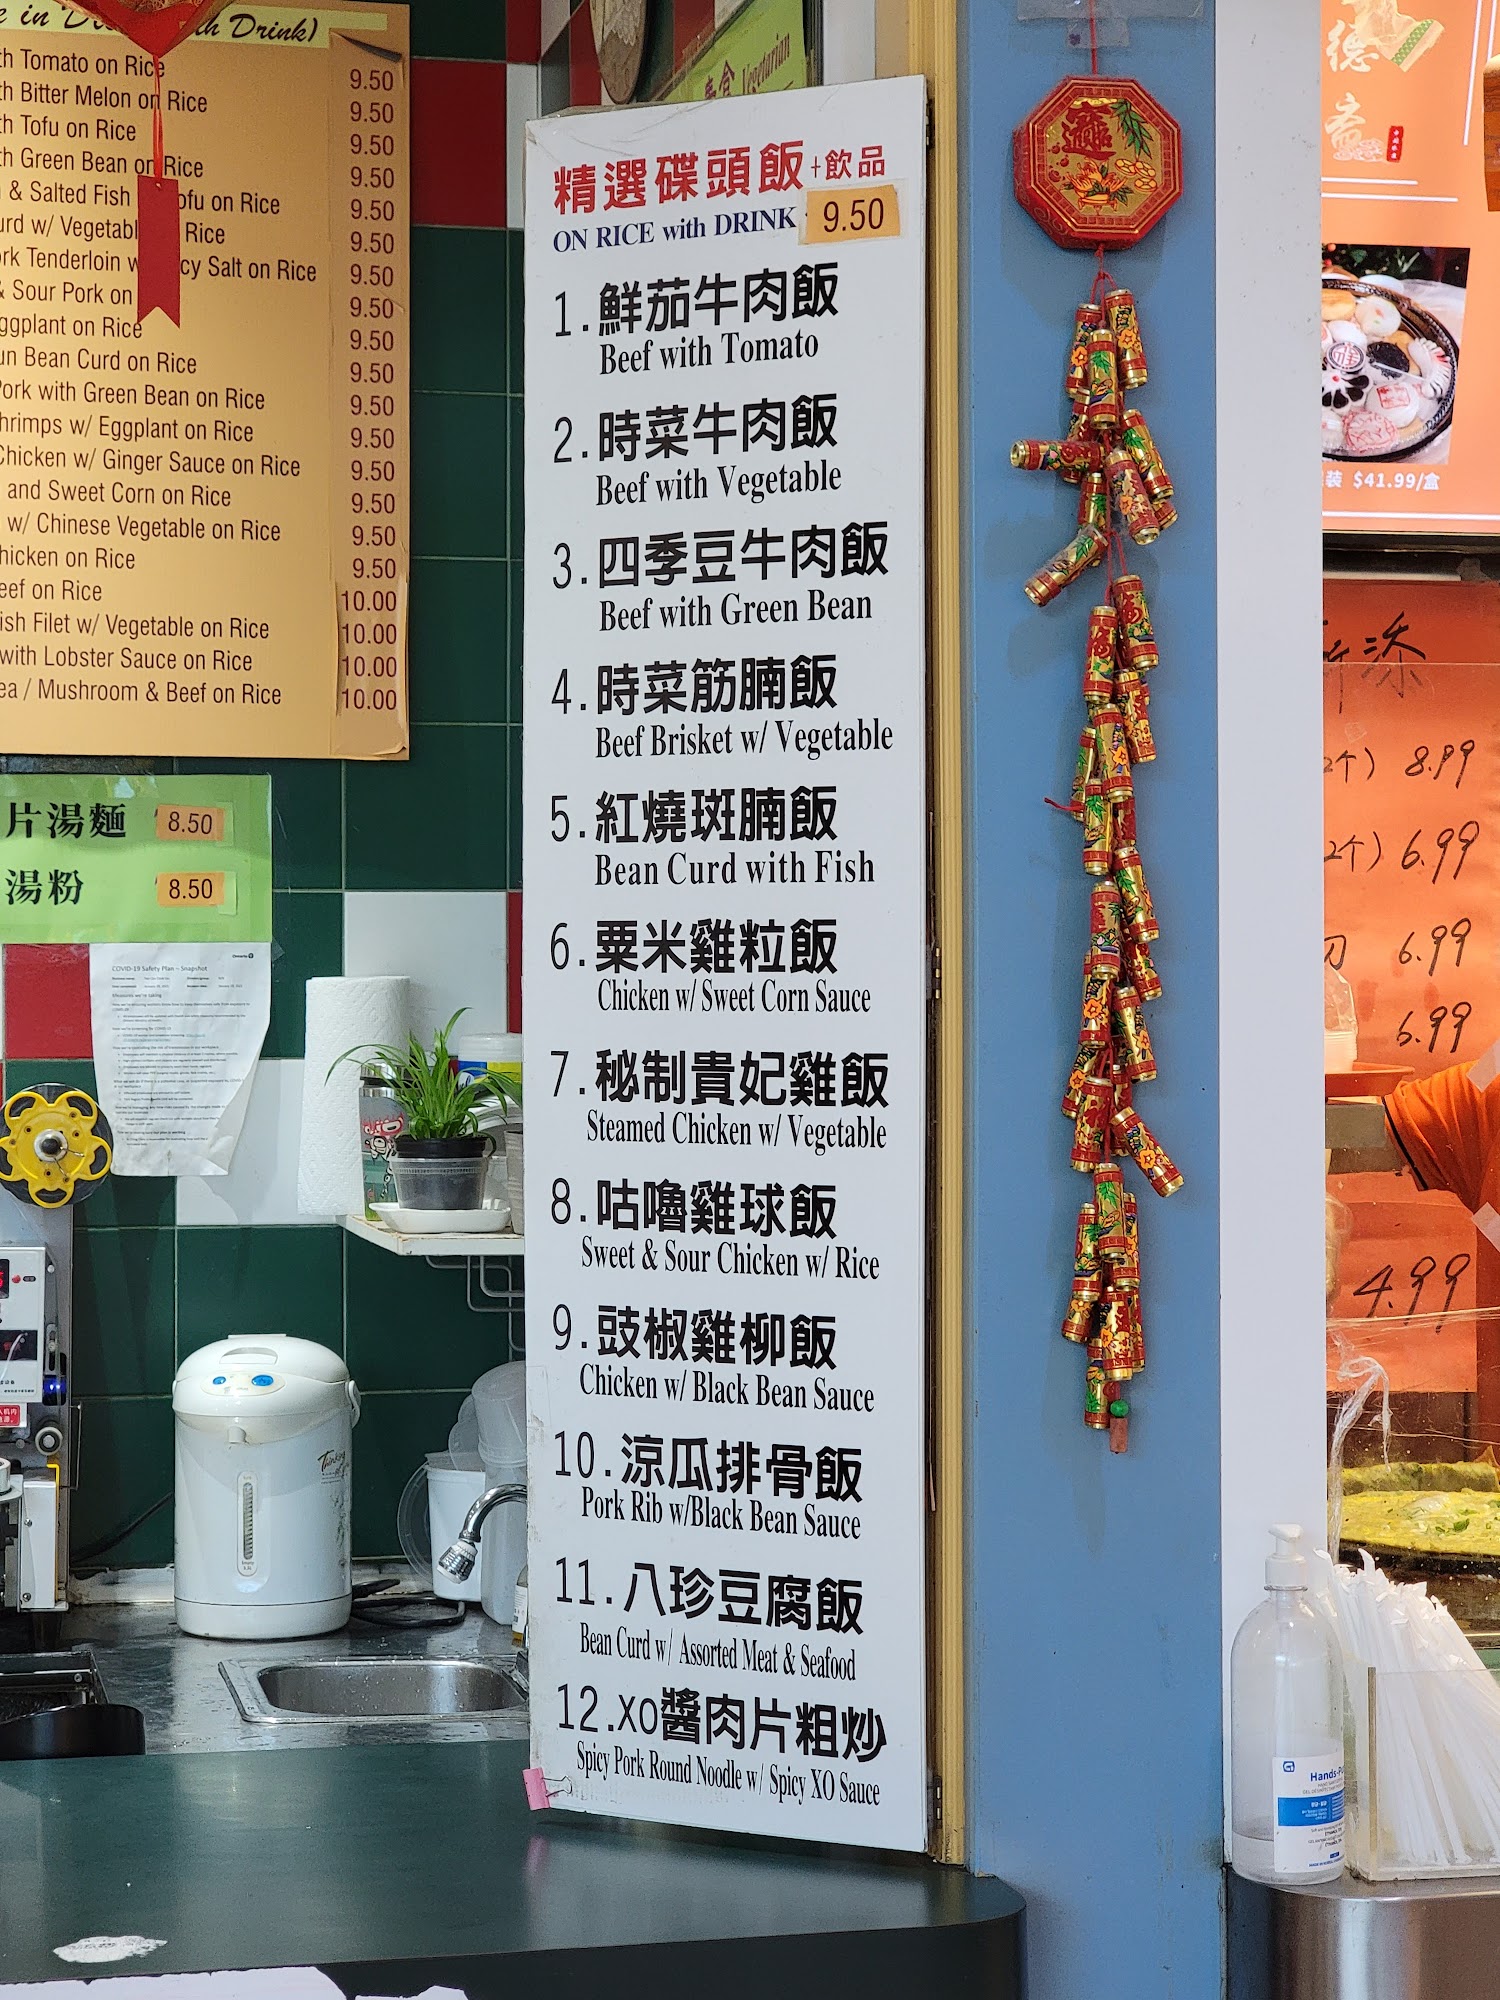 th Drink)
th Tomato on Rice 9.50
th Bitter Melon on Rice 9.50
th Tofu on Rice 9.50
th Green Bean on Rice 9.50
& Salted Fish ofu on Rice 9.50
urd w/ Vegetabl Rice 9.50
rk Tenderloin w cy Salt on Rice 9.50
& Sour Pork on 9.50
ggplant on Rice 9.50
un Bean Curd on Rice 9.50
Pork with Green Bean on Rice 9.50
hrimps w/ Eggplant on Rice 9.50
Chicken w/ Ginger Sauce on Rice 9.50
and Sweet Corn on Rice 9.50
w/ Chinese Vegetable on Rice 9.50
hicken on Rice 9.50
eef on Rice 10.00
ish Filet w/ Vegetable on Rice 10.00
with Lobster Sauce on Rice 10.00
ea / Mushroom & Beef on Rice 10.00
片湯麵 8.50
湯粉 8.50
COVID-19 Safety Plan – Snapshot
食 Vegetarian
精選碟頭飯+飲品
ON RICE with DRINK 9.50
1.鮮茄牛肉飯
Beef with Tomato
2.時菜牛肉飯
Beef with Vegetable
3.四季豆牛肉飯
Beef with Green Bean
4.時菜筋腩飯
Beef Brisket w/ Vegetable
5.紅燒斑腩飯
Bean Curd with Fish
6.粟米雞粒飯
Chicken w/ Sweet Corn Sauce
7.秘制貴妃雞飯
Steamed Chicken w/ Vegetable
8.咕嚕雞球飯
Sweet & Sour Chicken w/ Rice
9.豉椒雞柳飯
Chicken w/ Black Bean Sauce
10.涼瓜排骨飯
Pork Rib w/Black Bean Sauce
11.八珍豆腐飯
Bean Curd w/ Assorted Meat & Seafood
12.XO醬肉片粗炒
Spicy Pork Round Noodle w/ Spicy XO Sauce
德
斋
装 $41.99/盒
新添
2个) 8.99
2个) 6.99
6.99
6.99
4.99
Hands-P